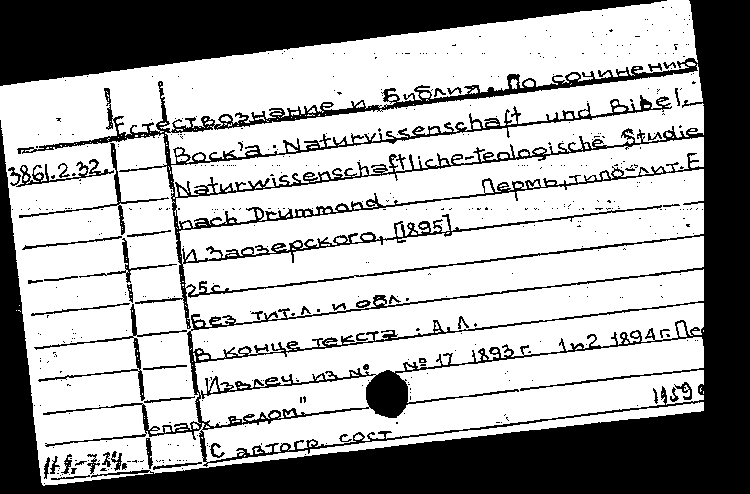 Естествознание и Библия. По сочинению
3861.2.32. Воск'а: Naturvissenschaft und Bibel.
Naturwissenschaftliche-teologische Studie
nach Drummond. Пермь, типо-лит. Е
И. Заозерского, [1895].
25с.
Без тит.л. и обл.
В конце текста: А.Л.
„Извлеч. из № № 17 1893 г. 1 и 2 1894 г. Пер
епарх. ведом."
С автогр. сост